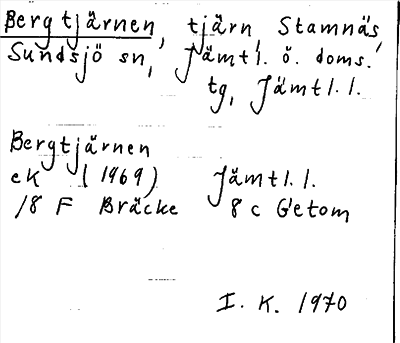 Bergtjärnen, tjärn, Stamnäs,
Sundsjö sn, Jämtl. ö. doms.
tg, Jämtl. l.
Bergtjärnen
ek (1969) Jämtl. l.
18 F Bräcke 8 c Getom
I. K. 1970